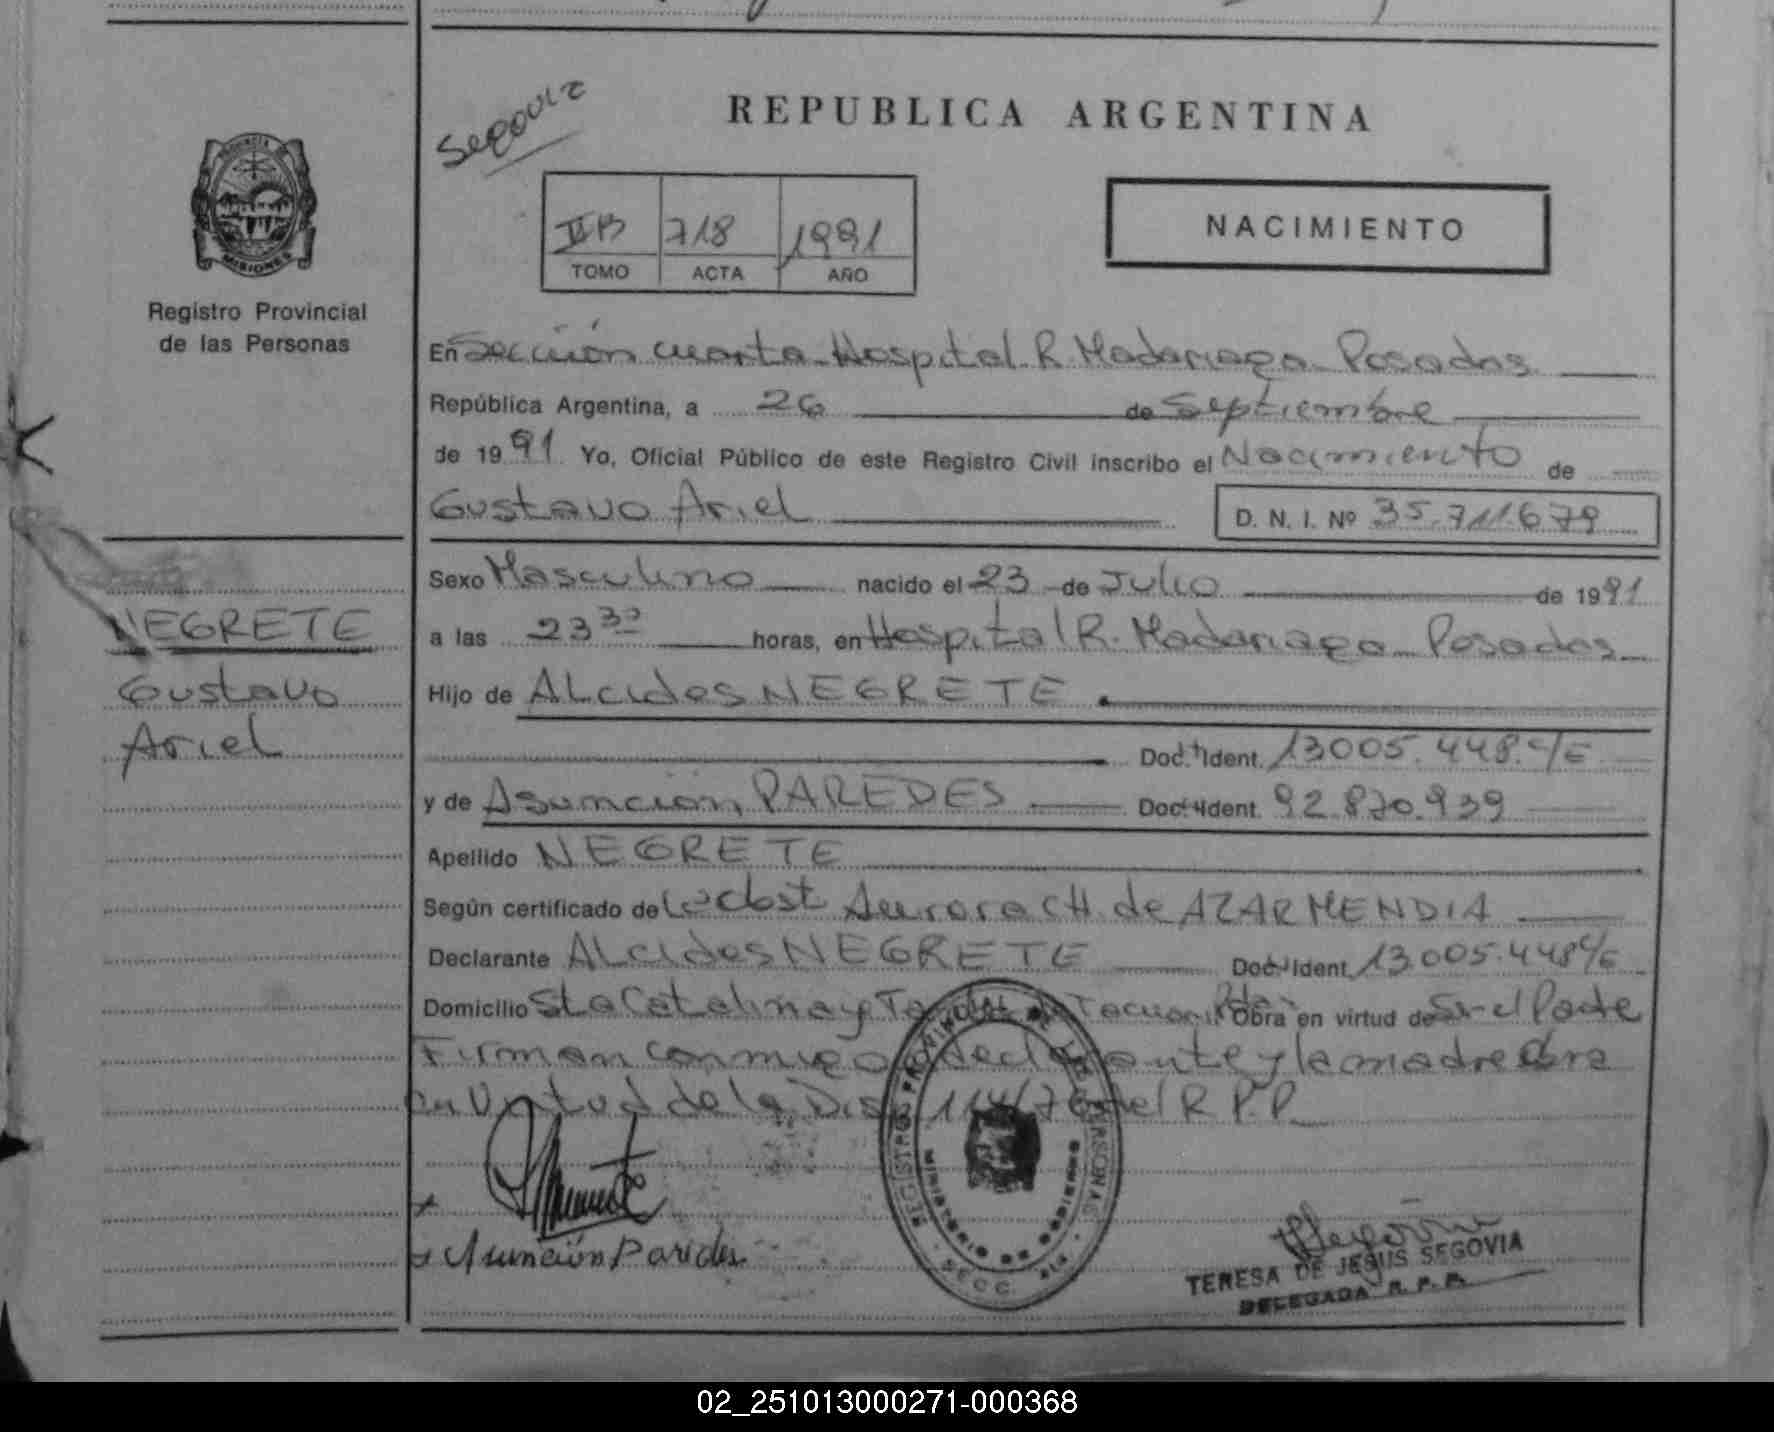 Segovia
REPUBLICA ARGENTINA
II B 718 1991
TOMO ACTA AÑO
NACIMIENTO
PROVINCIA
MISIONES
Registro Provincial
de las Personas
En Sección cuarta Hospital R. Madariaga Posadas
República Argentina, a 26 de Septiembre
de 1991 Yo, Oficial Público de este Registro Civil inscribo el Nacimiento de
Gustavo Ariel D. N. I. Nº 35.711.679
Sexo Masculino nacido el 23 de Julio de 1991
a las 23 30 horas, en Hospital R. Madariaga Posadas
Hijo de Alcides NEGRETE
Doc. Ident. 13005.448 C/E
y de Asunción PAREDES Doc. Ident. 92.870.939
Apellido NEGRETE
Según certificado de la obst Aurora CH. de AZARMENDIA
Declarante Alcides NEGRETE Doc. Ident. 13.005.448 C/E
Domicilio Sta Catalina y Tacuari Obra en virtud de Ser el Padre
Firman conmigo declarante y la madre Obra
en Virtud de la Disp 114/76 del R.P.P.
NEGRETE
Gustavo
Ariel
x
x Asunción Paredes
REGISTRO PROVINCIAL DE LAS PERSONAS
MINISTERIO DE GOBIERNO
SECC. 4ta
TERESA DE JESUS SEGOVIA
DELEGADA R. P. P.
02_251013000271-000368